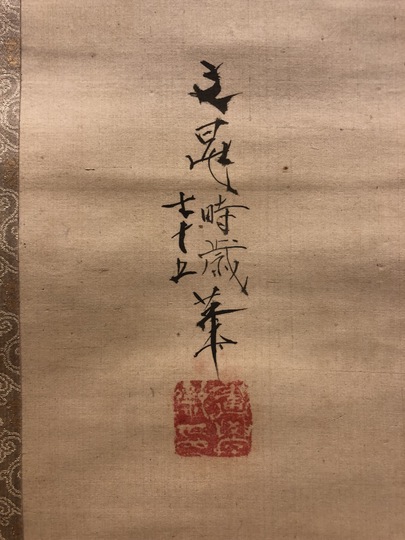 文晁
時歳
七十五
筆